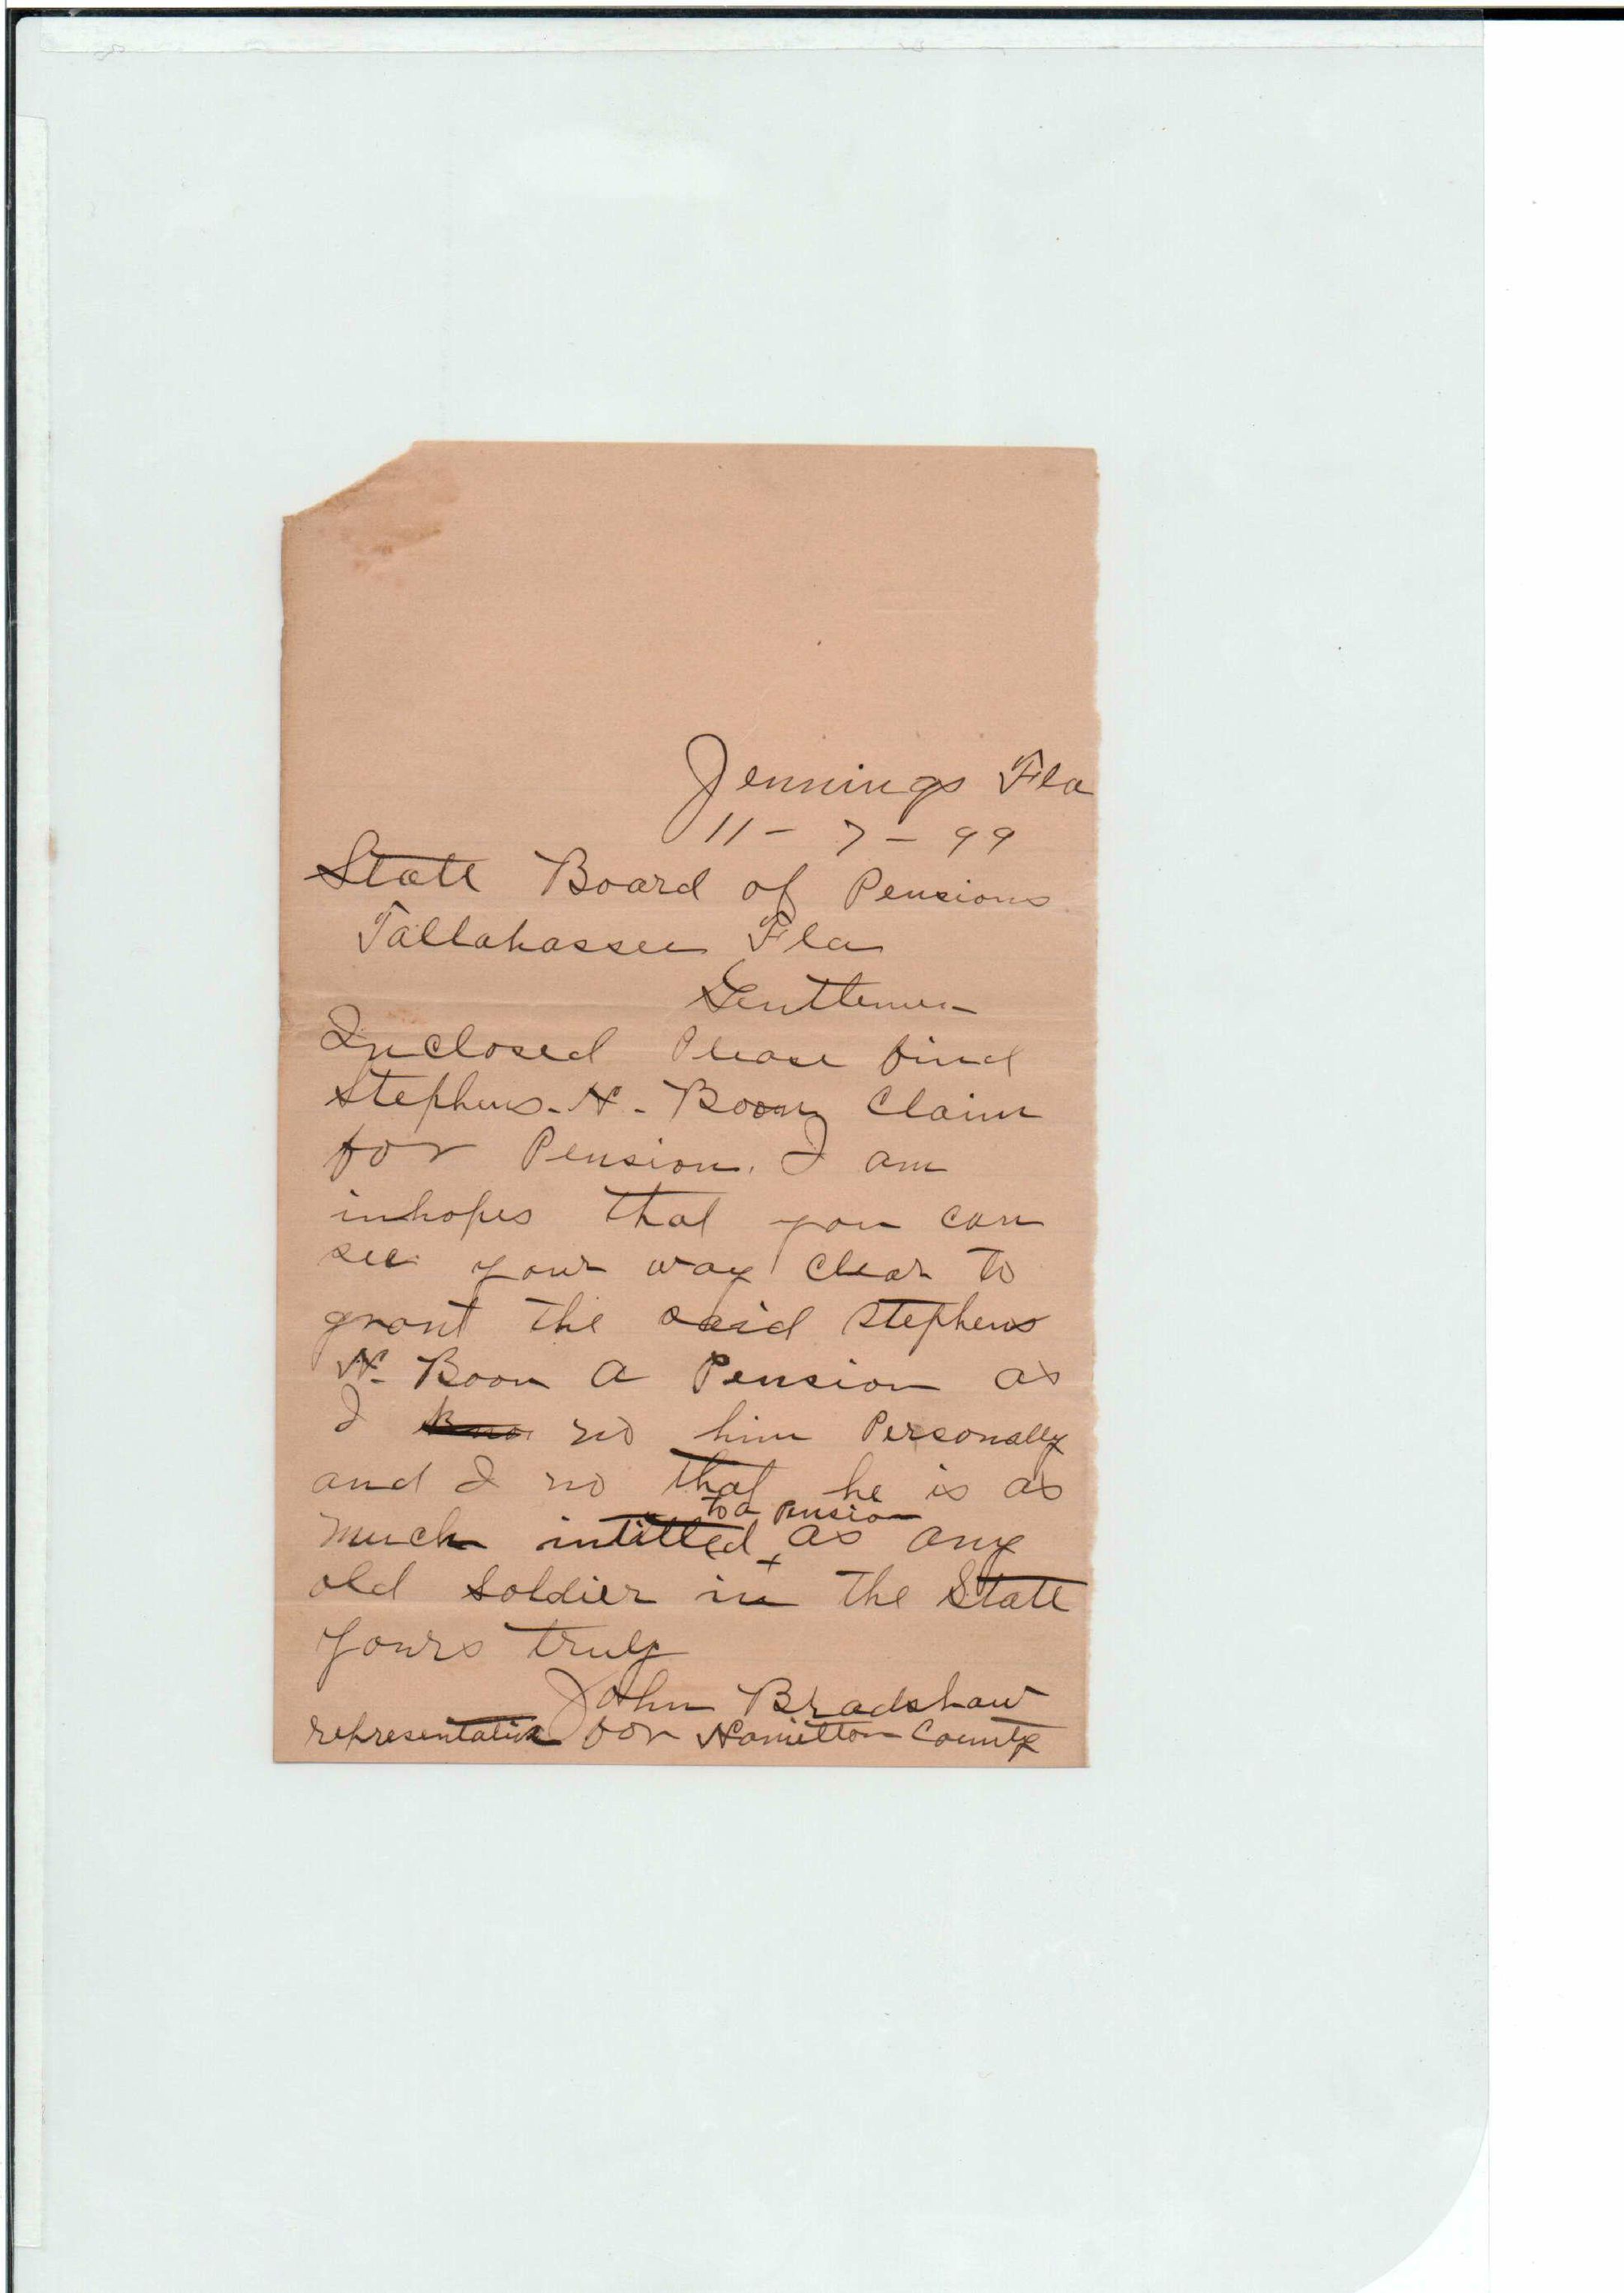 Jennings Fla
11 - 7 - 99
State Board of Pensions
Tallahassee Fla
Gentlemen
Inclosed Please find
Stephens - H - Boon Claim
for Pension. I am
inhopes that you can
see your way clear to
grant the said Stephens
H. Boon a Pension as
I no him Personally
and I no that he is as
to a Pension
much intitled + as any
old Soldier in the State
yours truly
John Bradshaw
representative for Hamilton County